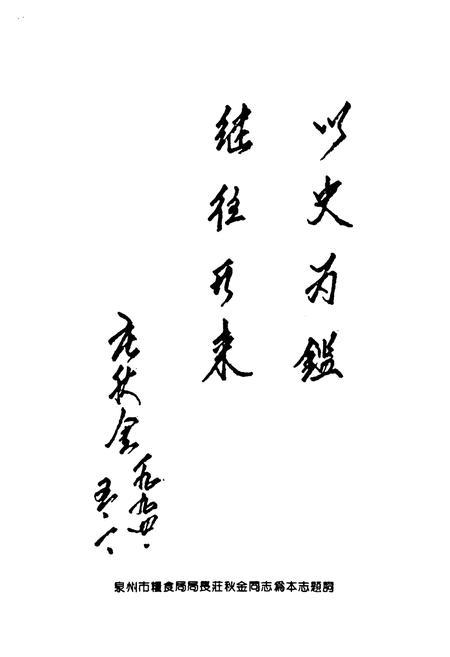 以史为鑑
继往开来
庄秋金
一九九四、
五、八
泉州市糧食局局長莊秋金同志爲本志題詞